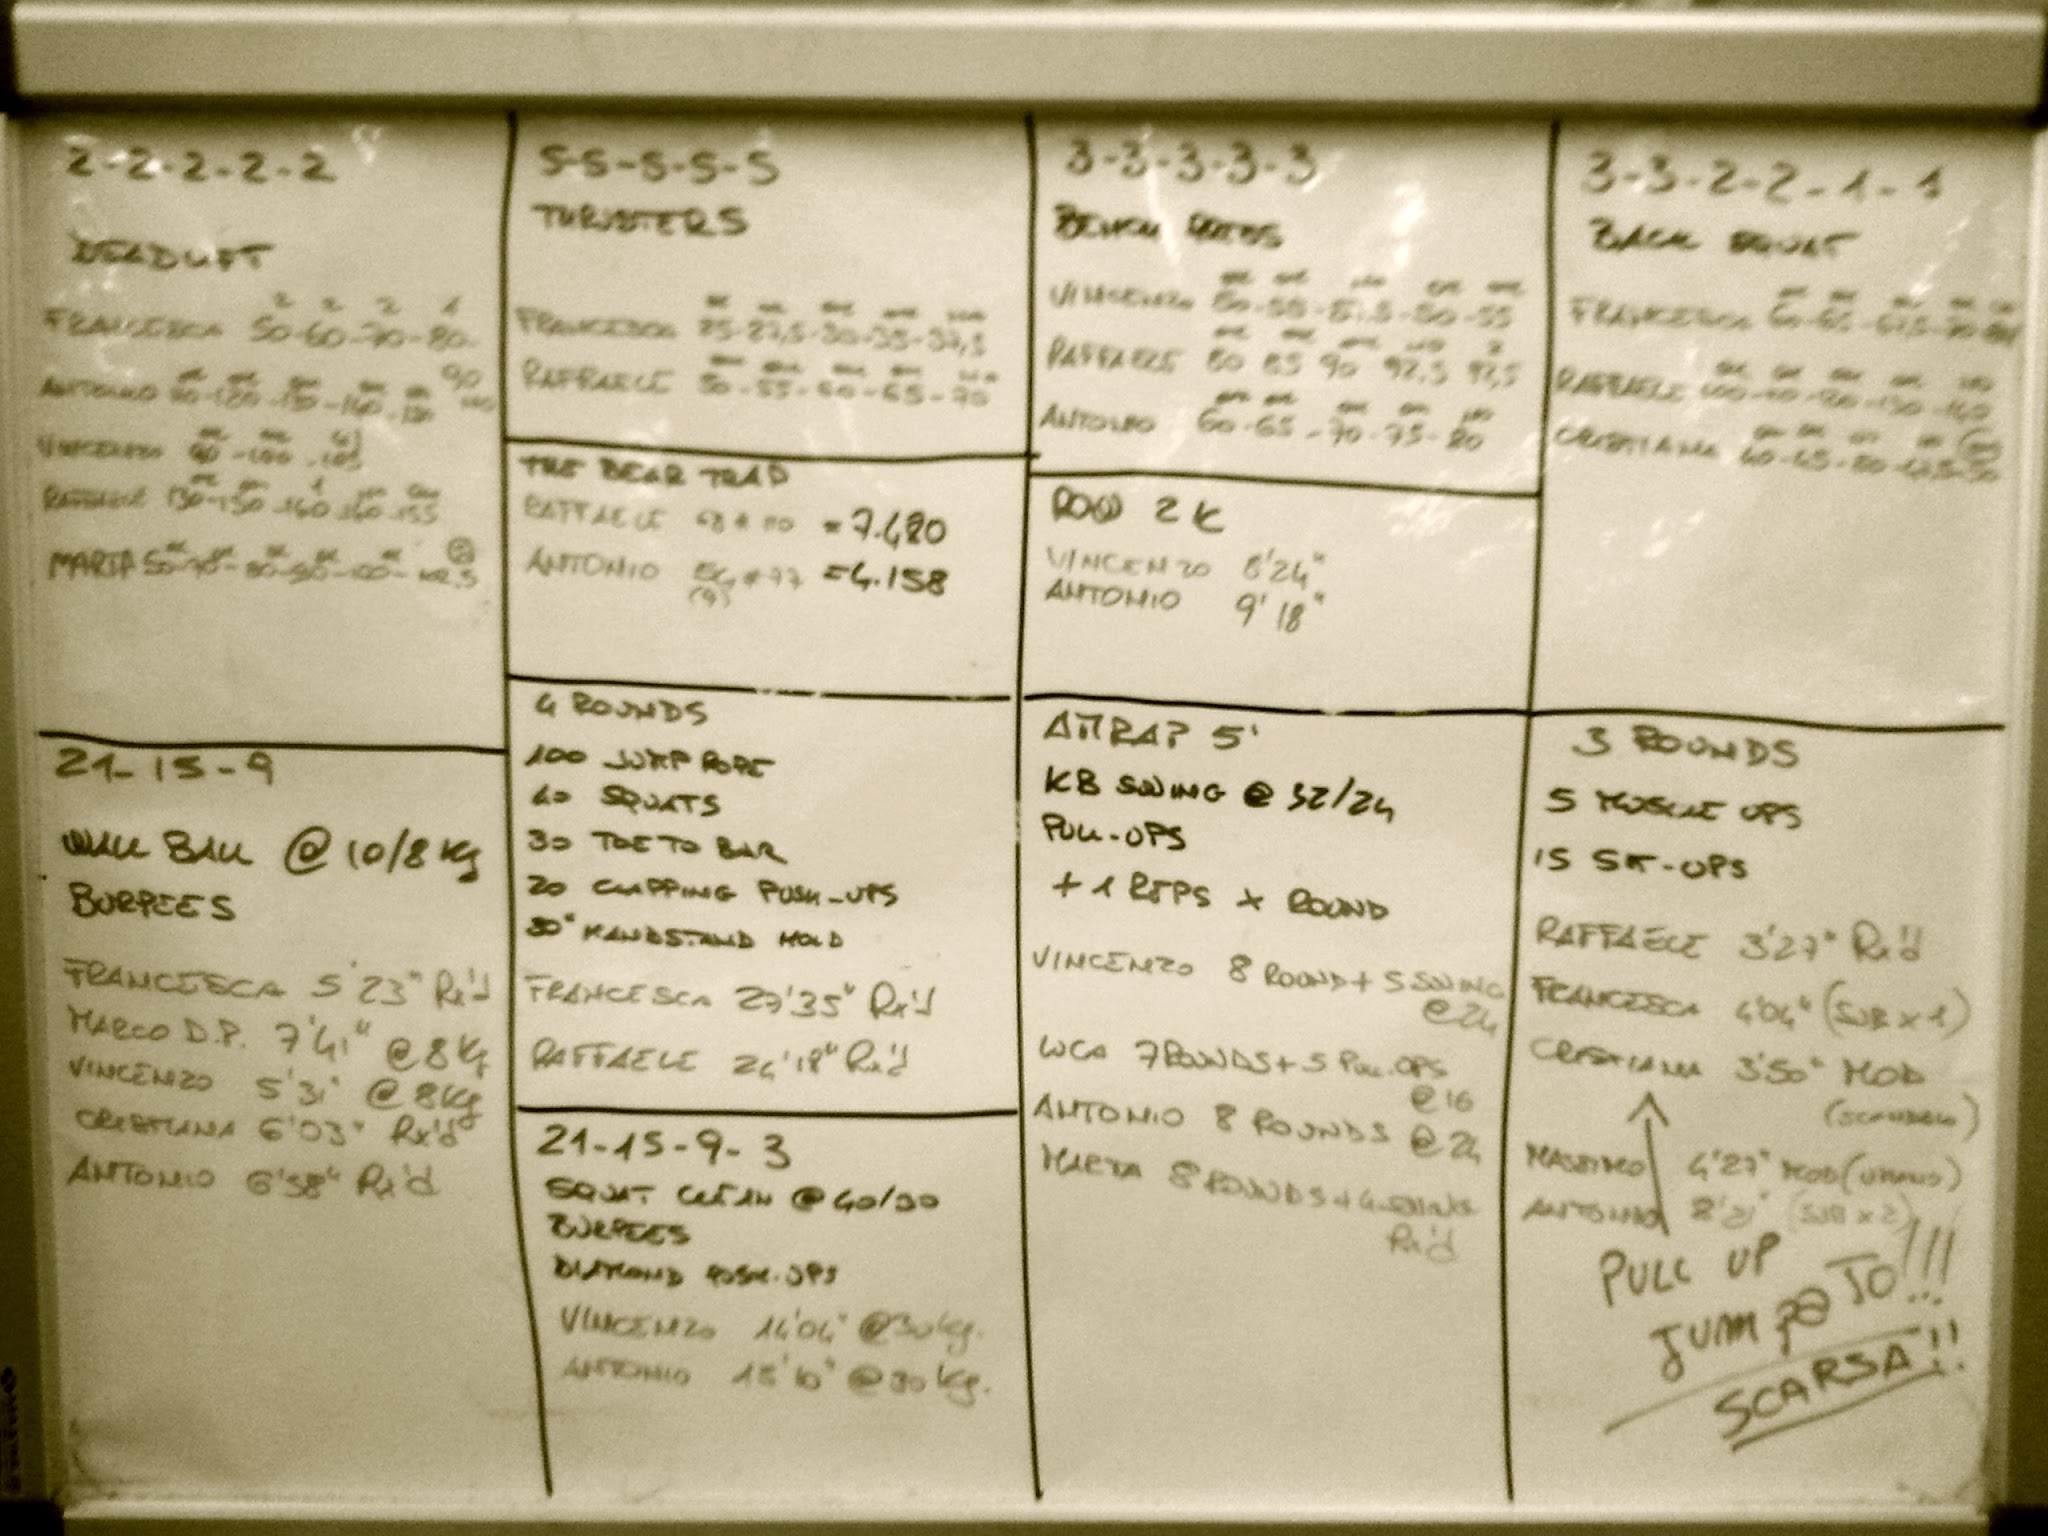 2-2-2-2-2
DEADLIFT
2 2 2 1
FRANCESCA 50-60-70-80-
ANTONIO
VINCENZO 90-100-105
RAFFAELE
MARTA
21-15-9
WALL BALL @ 10/8 Kg
BURPEES
FRANCESCA 5'23" Rx'd
MARCO D.P. 7'41" @ 8 Kg
VINCENZO 5'31" @ 8Kg
CRISTIANA 6'03" Rx'd
ANTONIO 6'58" Rx'd
5-5-5-5-5
THRUSTERS
FRANCESCA 25-27,5-30-35-37,5
RAFFAELE 50-55-60-65-70
THE BEAR TRAP
RAFFAELE 68 * 110 = 7.480
ANTONIO 54 * 77 = 4.158
(9)
4 ROUNDS
100 JUMP ROPE
40 SQUATS
30 TOE TO BAR
20 CLAPPING PUSH-UPS
30" HANDSTAND HOLD
FRANCESCA 27'35" Rx'd
RAFFAELE 24'18" Rx'd
21-15-9-3
SQUAT CLEAN @ 40/30
BURPEES
DIAMOND PUSH-UPS
VINCENZO 14'04" @30Kg.
ANTONIO 15'10" @30Kg.
3-3-3-3-3
BENCH PRESS
VINCENZO
RAFFAELE 80 85 90 92,5 92,5
ANTONIO 60-65-70-75-80
ROW 2 K
VINCENZO 8'24"
ANTONIO 9'18"
AMRAP 5'
KB SWING @ 32/24
PULL-UPS
+ 1 REPS x ROUND
VINCENZO 8 ROUND + 5 SWING
@24
LUCA 7 ROUNDS + 5 PULL-UPS
@16
ANTONIO 8 ROUNDS @24
MARTA 8 ROUNDS + 4 SWING
Rx'd
3-3-2-2-1-1
BACK SQUAT
FRANCESCA
RAFFAELE
CRISTIANA
3 ROUNDS
5 MUSCLE UPS
15 SIT-UPS
RAFFAELE 3'27" Rx'd
FRANCESCA 4'04" (SUB x 1)
CRISTIANA 3'50" MOD
MASSIMO 4'27" MOD
ANTONIO 8'21" (SUB x 2)
PULL UP
JUMP@TO!!!
SCARSA!!